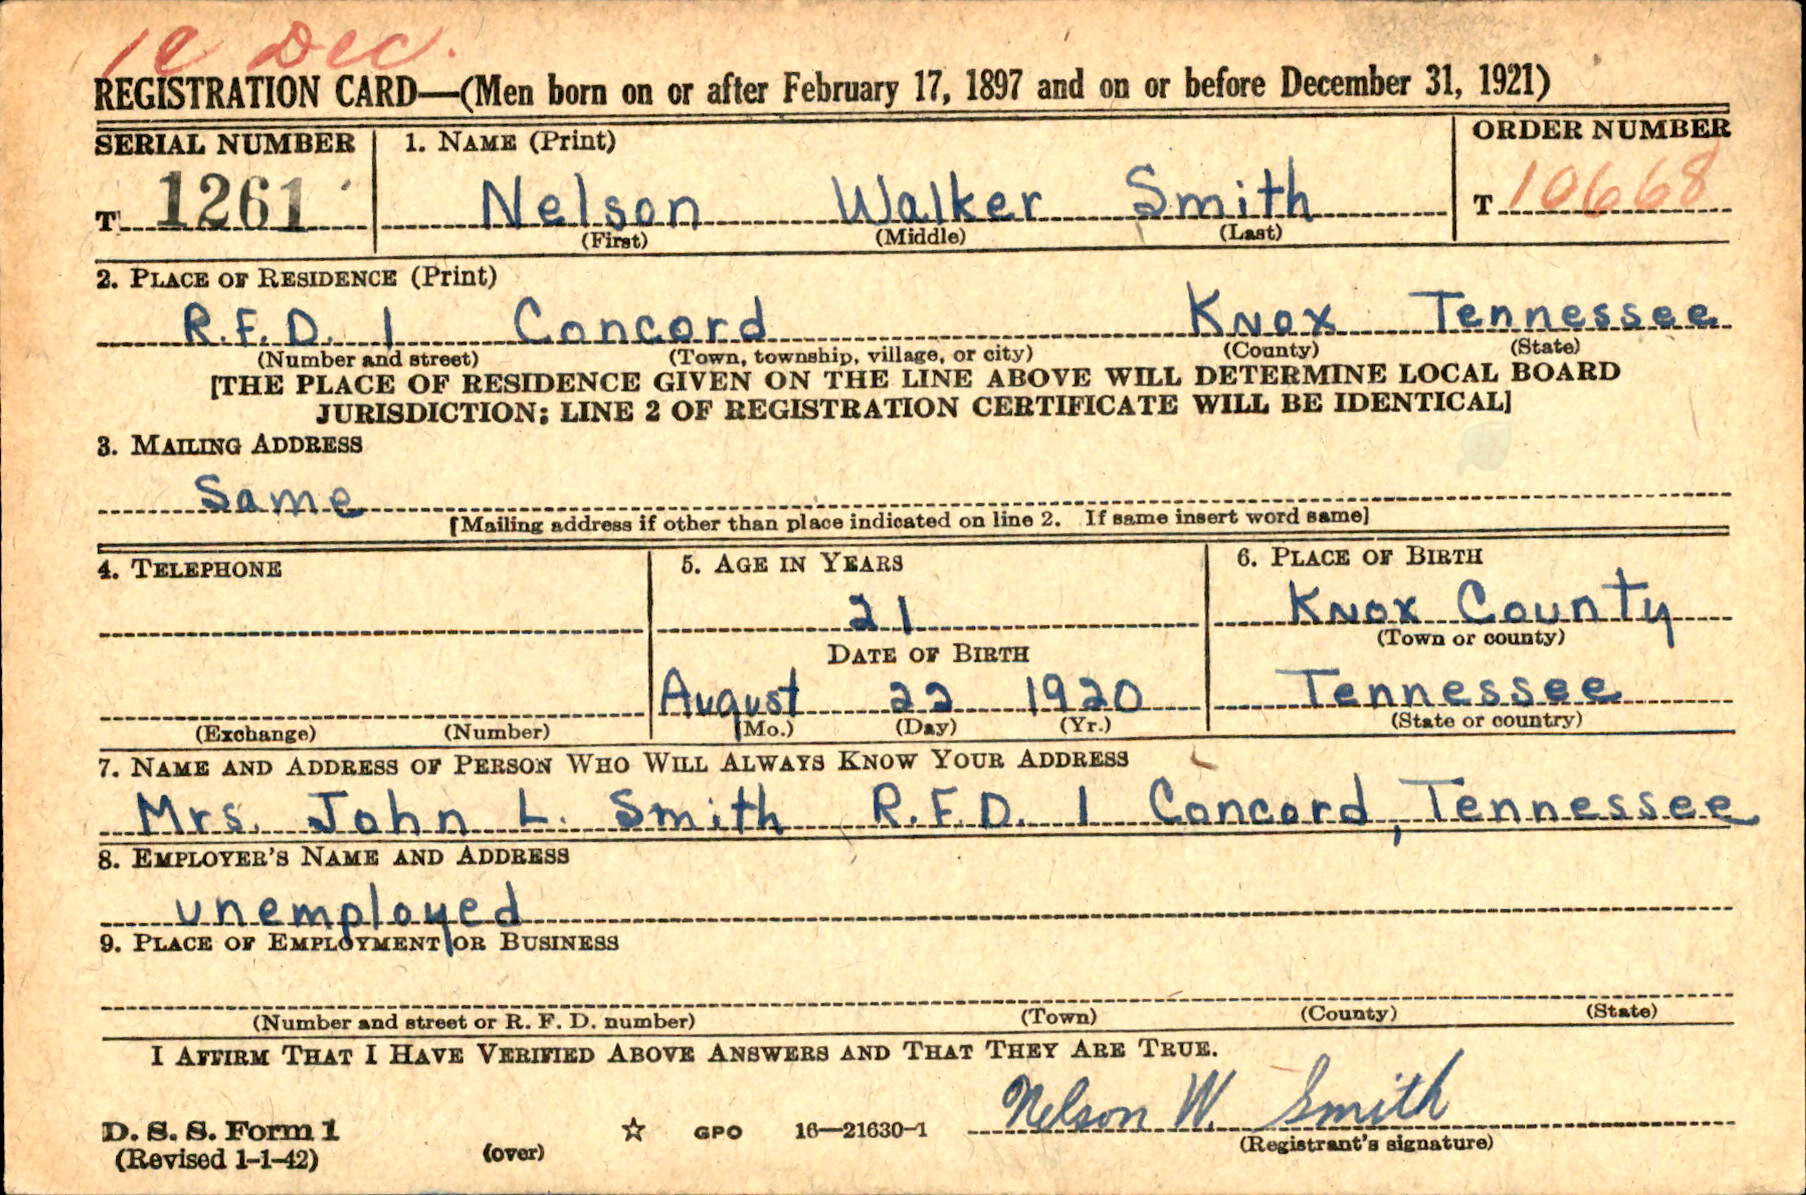 REGISTRATION CARD—(Men born on or after February 17, 1897 and on or before December 31, 1921)
SERIAL NUMBER
1. NAME (Print)
ORDER NUMBER
T 1261
Nelson Walker Smith
T 10668
(First) (Middle) (Last)
2. PLACE OF RESIDENCE (Print)
R.F.D. 1 Concord Knox Tennessee
(Number and street) (Town, township, village, or city) (County) (State)
[THE PLACE OF RESIDENCE GIVEN ON THE LINE ABOVE WILL DETERMINE LOCAL BOARD
JURISDICTION; LINE 2 OF REGISTRATION CERTIFICATE WILL BE IDENTICAL]
3. MAILING ADDRESS
Same
[Mailing address if other than place indicated on line 2. If same insert word same]
4. TELEPHONE
(Exchange) (Number)
5. AGE IN YEARS
21
DATE OF BIRTH
August 22 1920
(Mo.) (Day) (Yr.)
6. PLACE OF BIRTH
Knox County
(Town or county)
Tennessee
(State or country)
7. NAME AND ADDRESS OF PERSON WHO WILL ALWAYS KNOW YOUR ADDRESS
Mrs. John L. Smith R.F.D. 1 Concord, Tennessee
8. EMPLOYER'S NAME AND ADDRESS
unemployed
9. PLACE OF EMPLOYMENT OR BUSINESS
(Number and street or R. F. D. number) (Town) (County) (State)
I AFFIRM THAT I HAVE VERIFIED ABOVE ANSWERS AND THAT THEY ARE TRUE.
Nelson W. Smith
(Registrant's signature)
D. S. S. Form 1
(Revised 1-1-42)
(over)
☆ GPO 16—21630-1